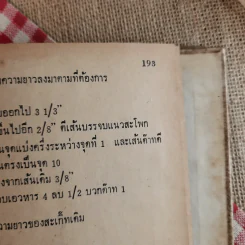 193
ความยาวลงมาตามที่ต้องการ
ออกไป 3 1/3"
อีก 2/8" ตีเส้นบรรจบแนวสะโพก
จุดแบ่งครึ่งระหว่างจุดที่ 1 และเส้นต่ำที่
ตรงเป็นจุด 10
จากเส้นเดิม 3/8"
เอวหาร 4 ลบ 1/2 บวกต่ำที่ 1
ความยาวของสะเก็ทเดิม